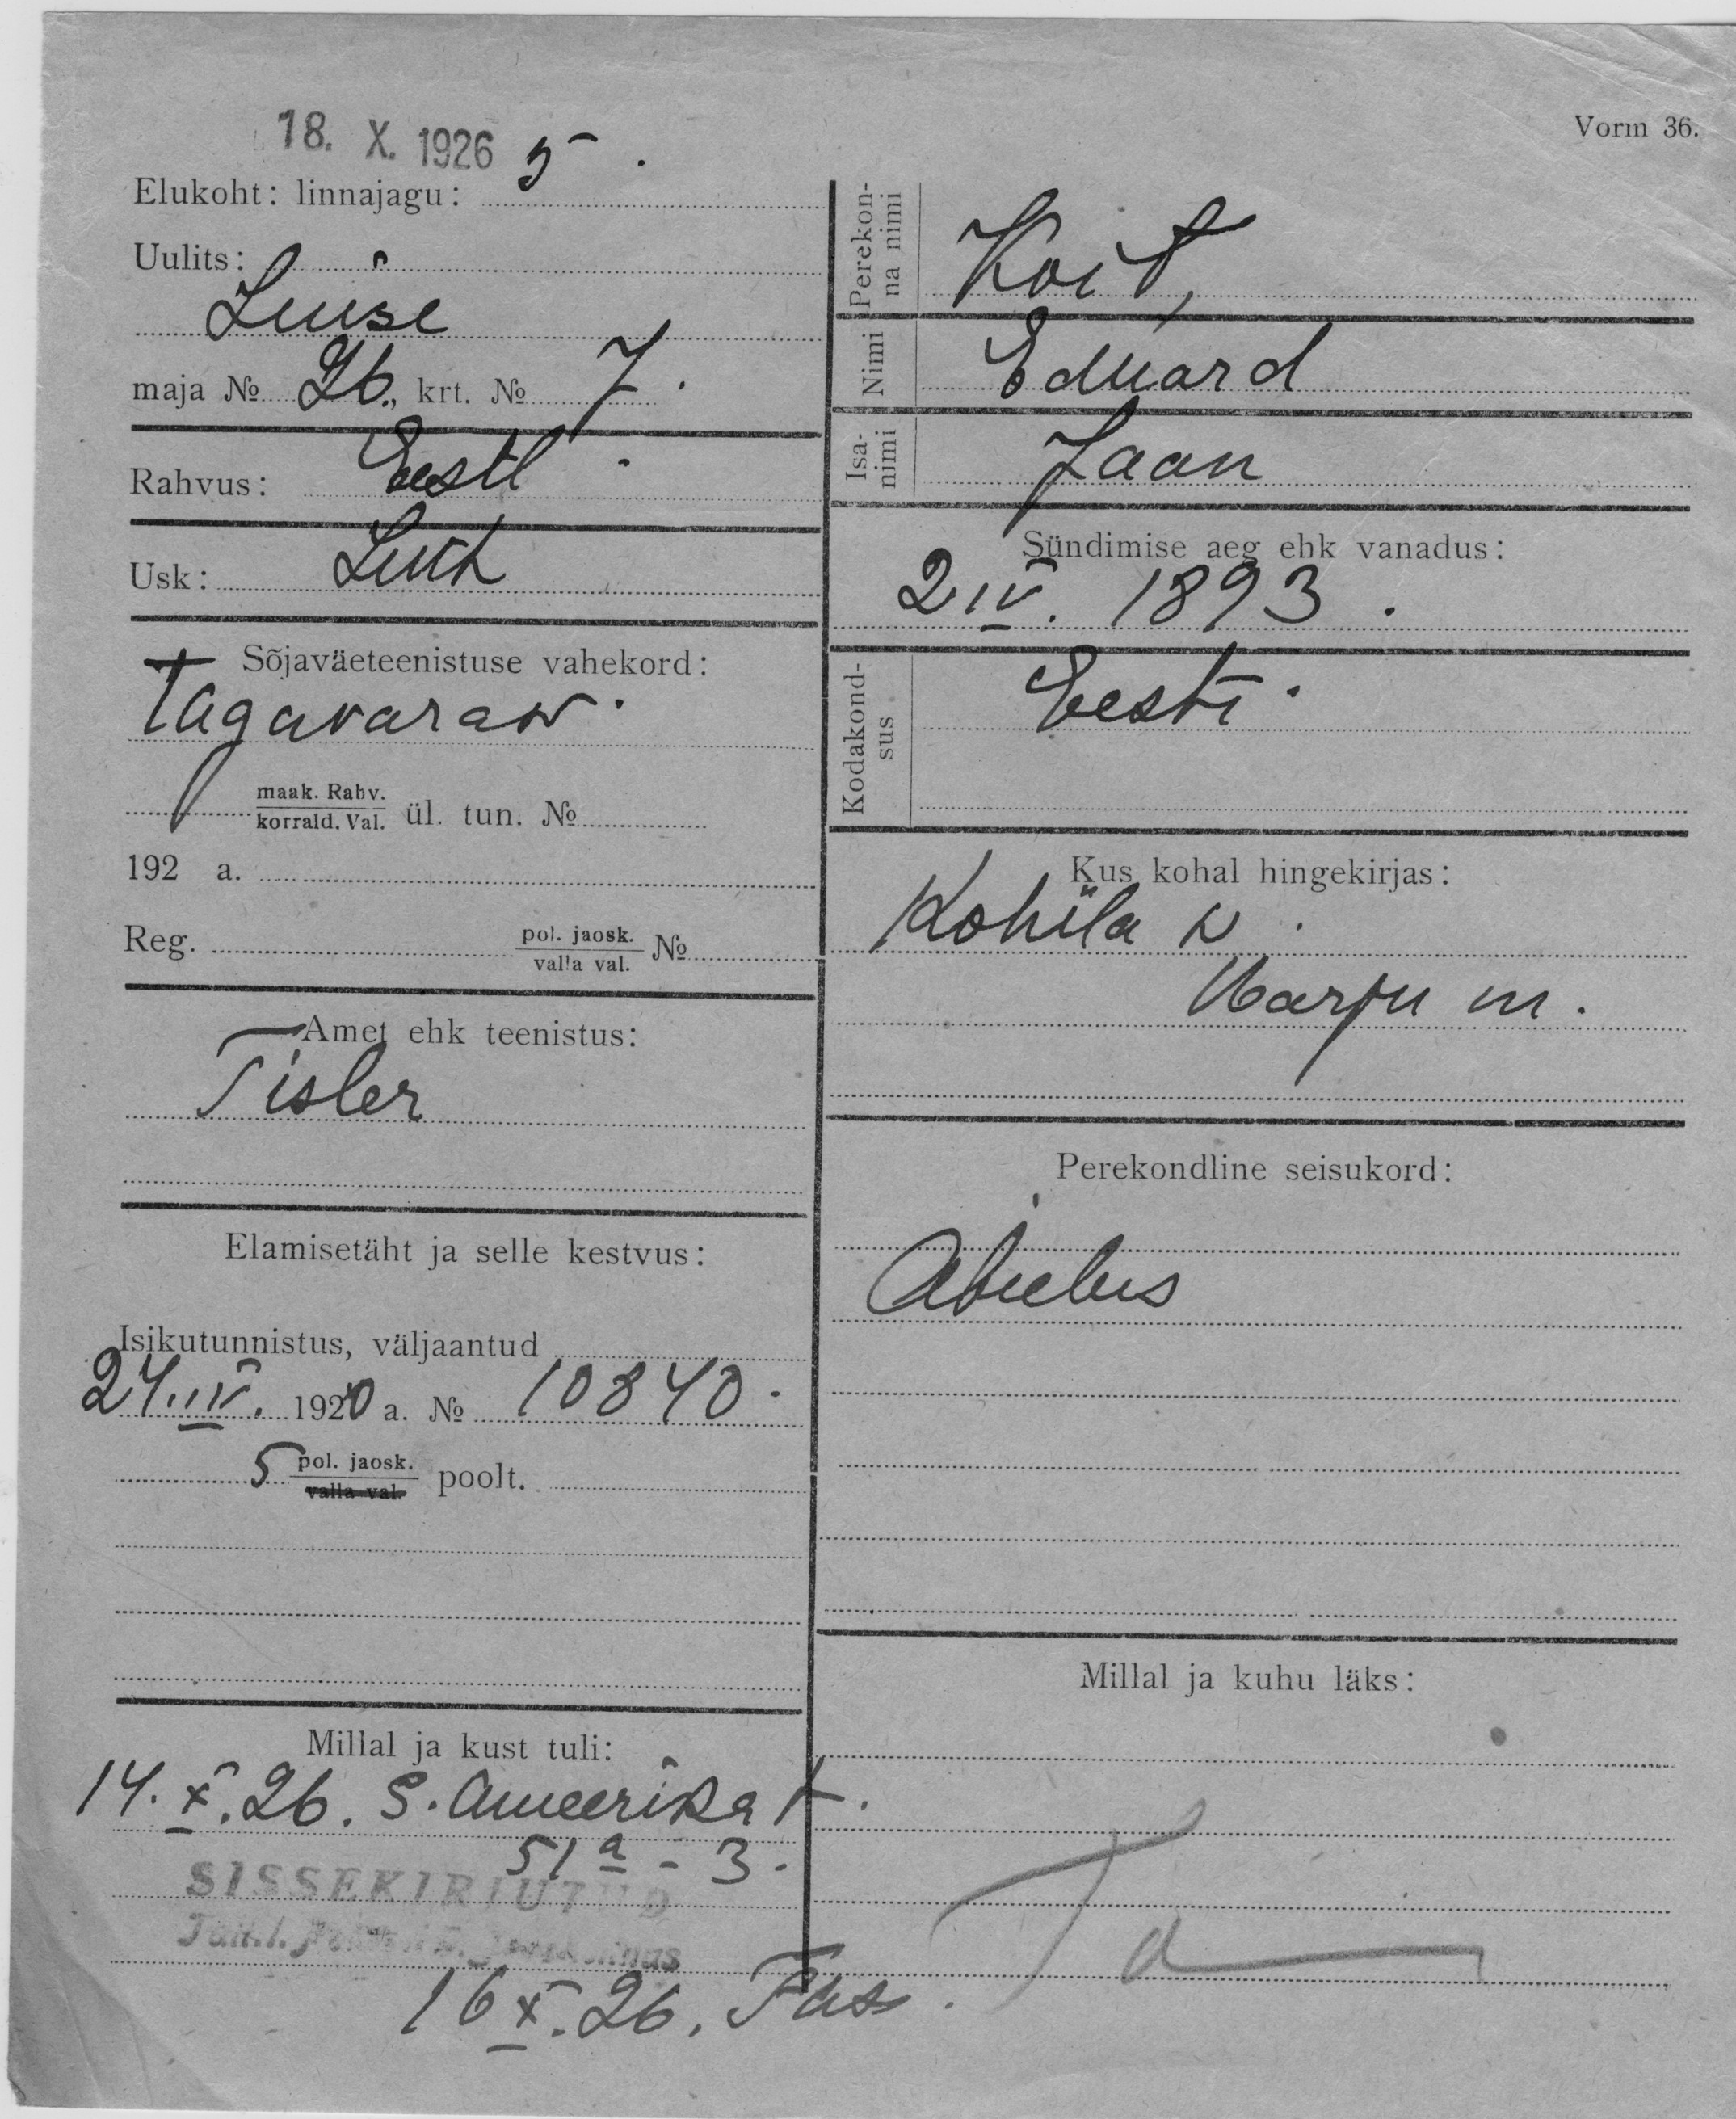 18. X. 1926
Vorm 36.
Elukoht: linnajagu: 5
Uulits:
Luise
maja № 26., krt. № 7.
Rahvus: Eesti
Usk: Luth
Sõjaväeteenistuse vahekord:
Tagavaraw.
maak. Rahv.
korrald. Val. ül. tun. №
192 a.
Reg. pol. jaosk. №
valla val.
Amet ehk teenistus:
Tisler
Elamisetäht ja selle kestvus:
Isikutunnistus, väljaantud
24. IV. 1920 a. № 10840.
5 pol. jaosk. poolt.
valla val.
Millal ja kust tuli:
14. X. 26. S. Ameerika t.
51 a - 3.
SISSEKIRJUTUD
16 X. 26.
Perekon-
na nimi Koit,
Nimi Eduard
Isa-
nimi Jaan
Sündimise aeg ehk vanadus:
2 IV. 1893.
Kodakond-
sus Eesti.
Kus kohal hingekirjas:
Kohila w.
Harju m.
Perekondline seisukord:
Abielus
Millal ja kuhu läks: